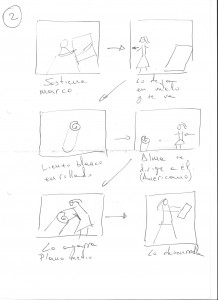 2
Sostiene
marco
Lo deja
en suelo
y se va
Lienzo blanco
enrollado
Alma se
dirige a él
(Americano)
Lo agarra
Plano medio
Lo desenrolla